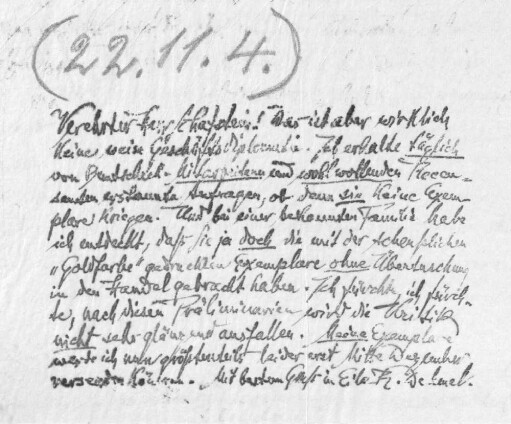 (22.11.4.)
Verehrter Herr Schafstein! Das ist aber wirklich
keine, wein Geschäftsdiplomatie. Ich erhalte täglich
von Buntscheck-Mitarbeitern und wohlwollenden Recen-
senten erstaunte Anfragen, ob denn sie keine Exem-
plare kriegen. Und bei einer bekannten Familie habe
ich entdeckt, daß Sie ja doch die mit der scheußlichen
„Goldfarbe" gedruckten Exemplare ohne Übertuschung
in den Handel gebracht haben. Ich fürchte, ich fürch-
te, nach diesen Präliminarien wird die Kritik
nicht sehr glänzend ausfallen. Meine Exemplare
werde ich nun größtenteils leider erst Mitte Dezember
versenden können. Mit bestem Gruß in Eile R. Dehmel.